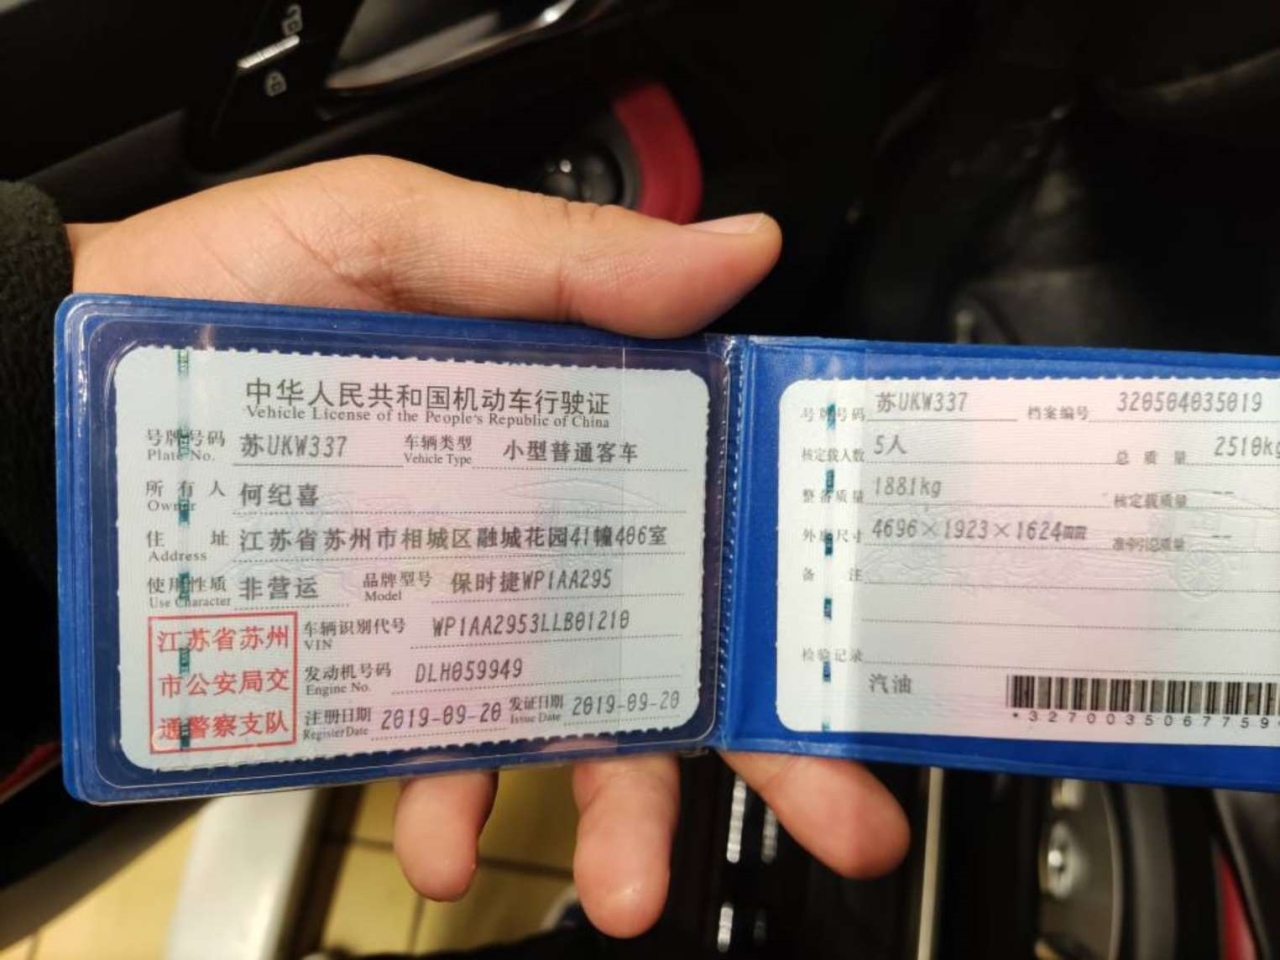 中华人民共和国机动车行驶证
Vehicle License of the People's Republic of China
号牌号码 苏UKW337 车辆类型 小型普通客车
Plate No. Vehicle Type
所有人 何纪喜
Owner
住址 江苏省苏州市相城区融城花园41幢406室
Address
使用性质 非营运 品牌型号 保时捷WP1AA295
Use Character Model
江苏省苏州
市公安局交
通警察支队
车辆识别代号 WP1AA2953LLB01210
VIN
发动机号码 DLH059949
Engine No.
注册日期 2019-09-20 发证日期 2019-09-20
Register Date Issue Date
号牌号码 苏UKW337 档案编号 320504035019
核定载人数 5人 总质量 2510kg
整备质量 1881kg 核定载质量 --
外廓尺寸 4696×1923×1624mm 准牵引总质量 --
备注
检验记录
汽油
*3270035067759